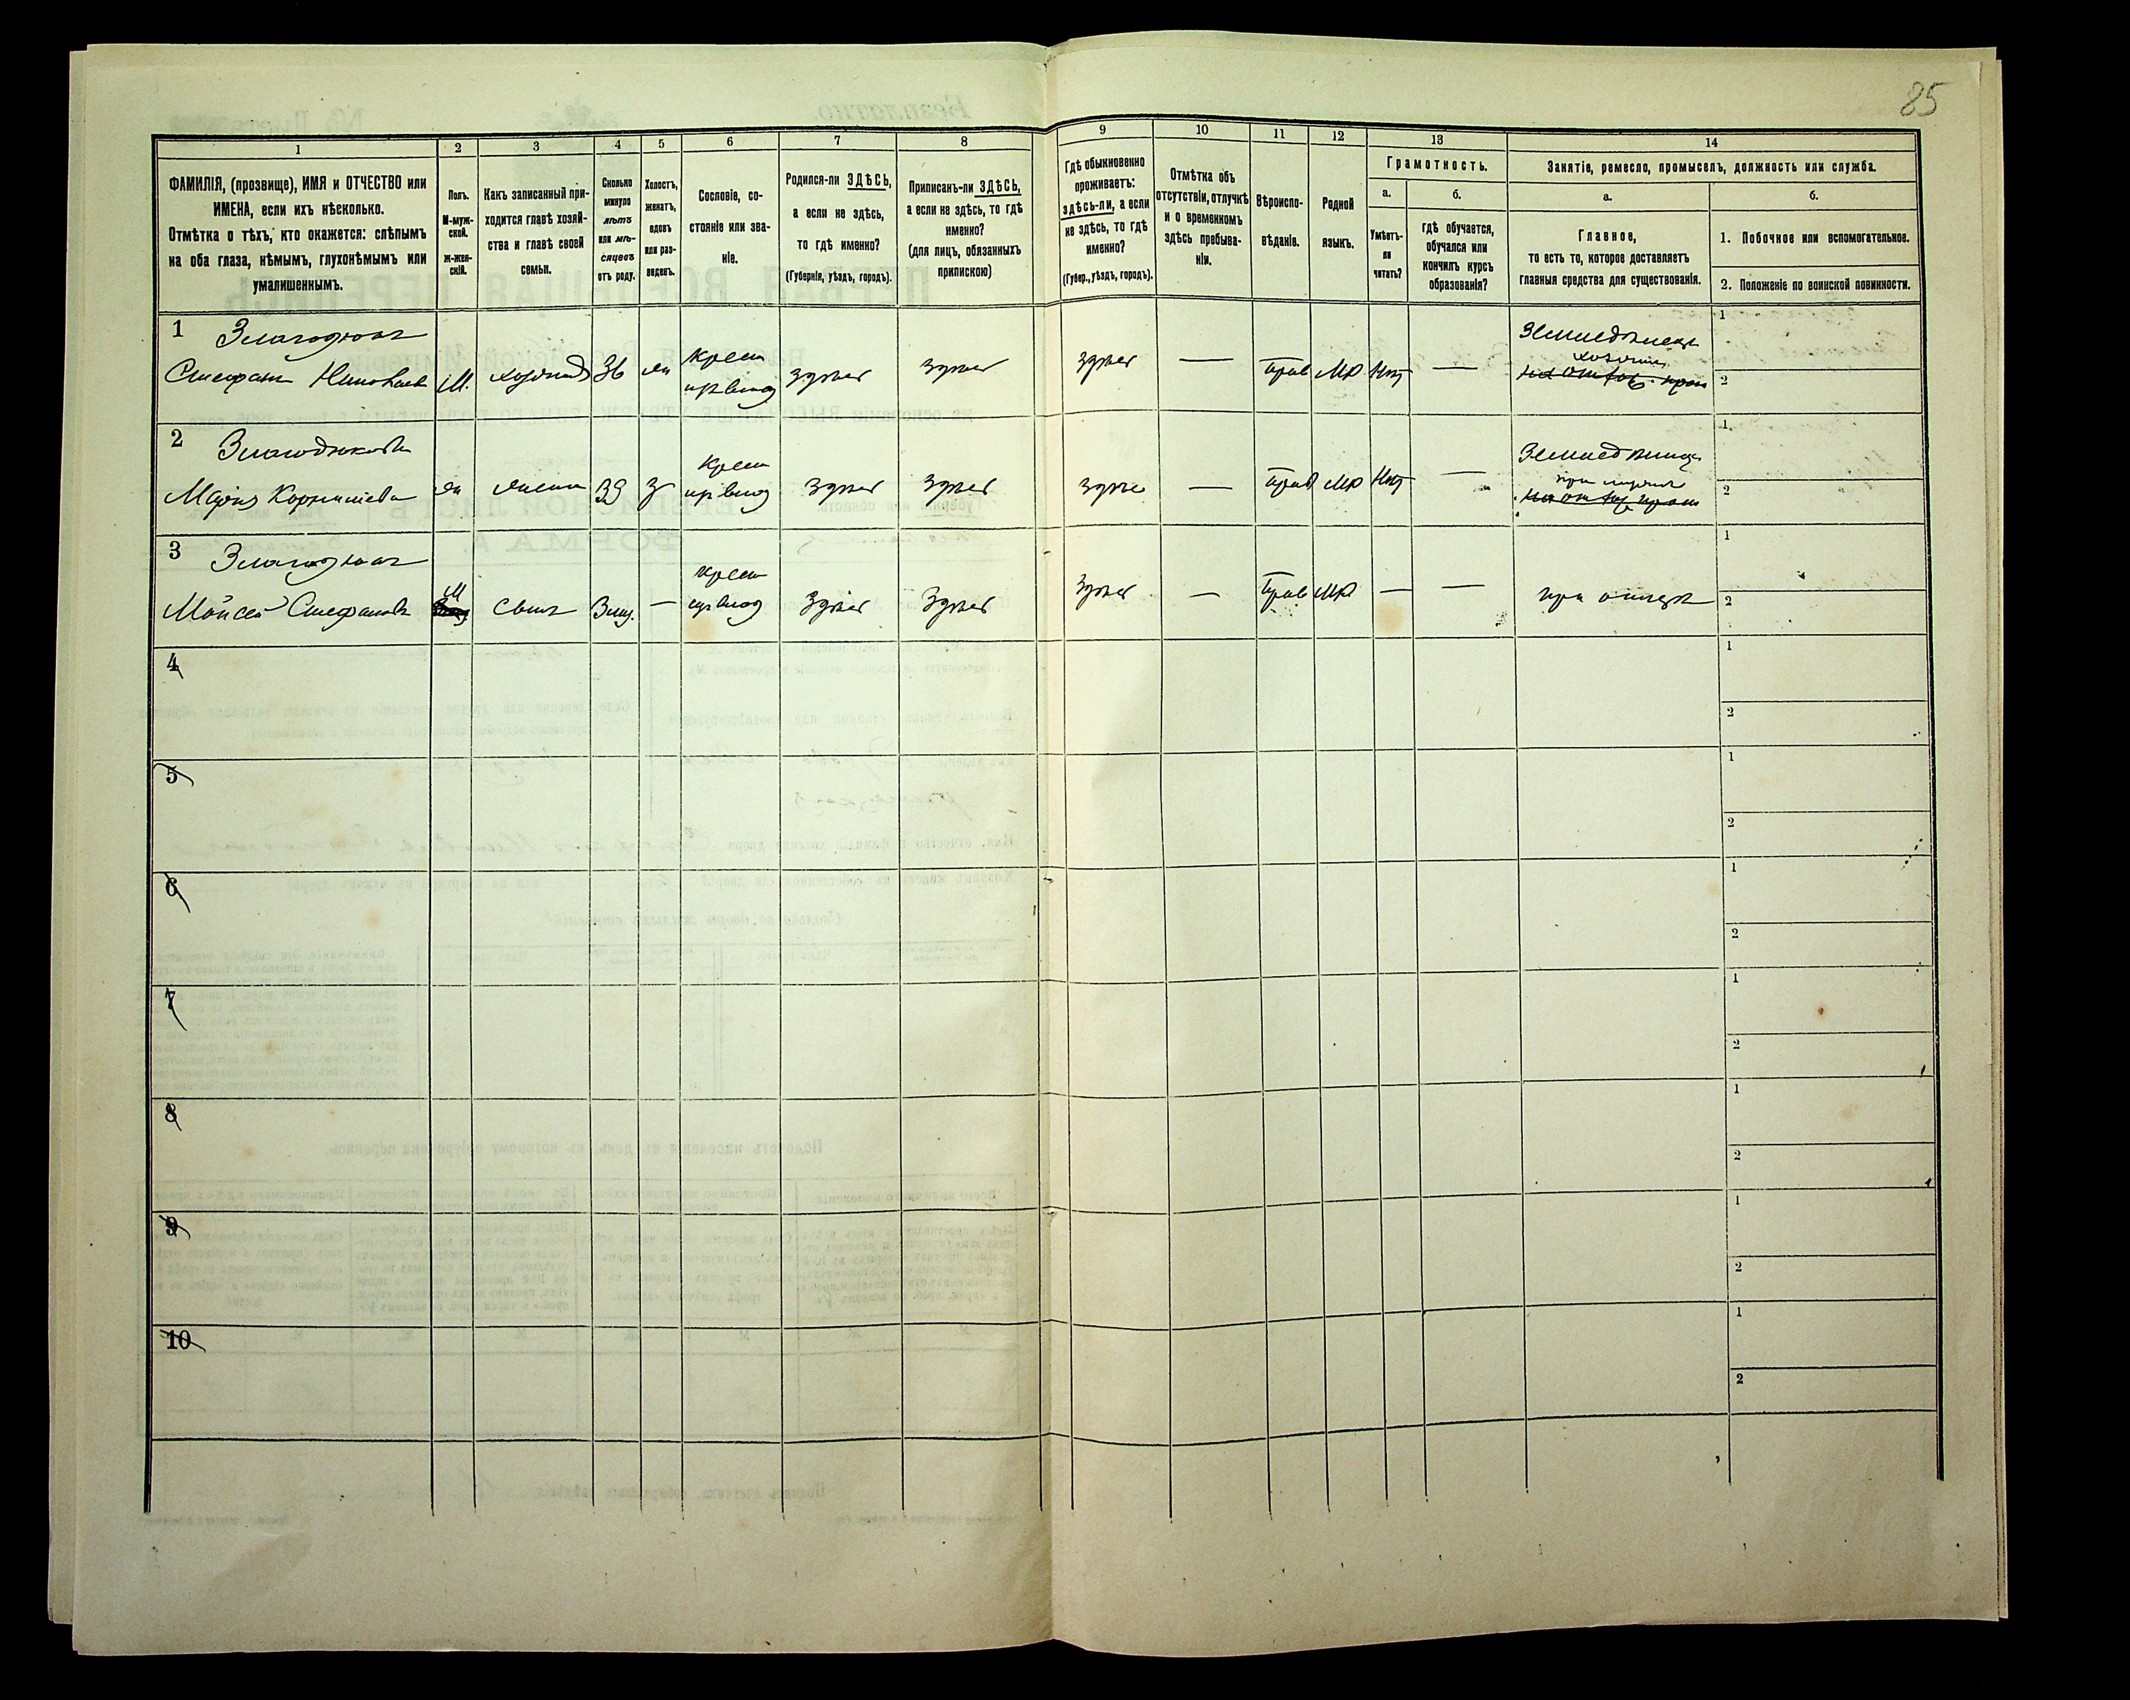 85
1
2
3
4
5
6
7
8
9
10
11
12
13
14
ФАМИЛІЯ, (прозвище), ИМЯ и ОТЧЕСТВО или
ИМЕНА, если ихъ нѣсколько.
Отмѣтка о тѣхъ, кто окажется: слѣпымъ
на оба глаза, нѣмымъ, глухонѣмымъ или
умалишеннымъ.
Полъ.
М-муж-
ской.
Ж-жен-
скій.
Какъ записанный при-
ходится главѣ хозяй-
ства и главѣ своей
семьи.
Сколько
минуло
лѣтъ
или мѣ-
сяцевъ
отъ роду.
Холостъ,
женатъ,
вдовъ
или раз-
веденъ.
Сословіе, со-
стояніе или зва-
ніе.
Родился-ли ЗДѢСЬ,
а если не здѣсь,
то гдѣ именно?
(Губернія, уѣздъ, городъ).
Приписанъ-ли ЗДѢСЬ,
а если не здѣсь, то гдѣ
именно?
(для лицъ, обязанныхъ
припискою)
Гдѣ обыкновенно
проживаетъ:
здѣсь-ли, а если
не здѣсь, то гдѣ
именно?
(Губер., уѣздъ, городъ).
Отмѣтка объ
отсутствіи, отлучкѣ
и о временномъ
здѣсь пребыва-
ніи.
Вѣроиспо-
вѣданіе.
Родной
языкъ.
Грамотность.
а.
б.
Умѣетъ-
ли
читать?
гдѣ обучается,
обучался или
кончилъ курсъ
образованія?
Занятіе, ремесло, промыселъ, должность или служба.
а.
б.
Главное,
то есть то, которое доставляетъ
главныя средства для существованія.
1. Побочное или вспомогательное.
2. Положеніе по воинской повинности.
1
Стефанъ
М.
36
крест
здѣсь
здѣсь
здѣсь
—
Прав
Мр
Нѣт
—
1
2
2
Марія Корнилієва
жена
39
з
крест
здѣсь
здѣсь
здѣсь
—
Прав
Мр
Нѣт
—
при мужѣ
1
2
3
Мойсей Стефановъ
М
сынъ
—
крест
здѣсь
здѣсь
здѣсь
—
Прав
Мр
—
—
при отцѣ
1
2
4
1
2
5
1
2
6
1
2
7
1
2
8
1
2
9
1
2
10
1
2